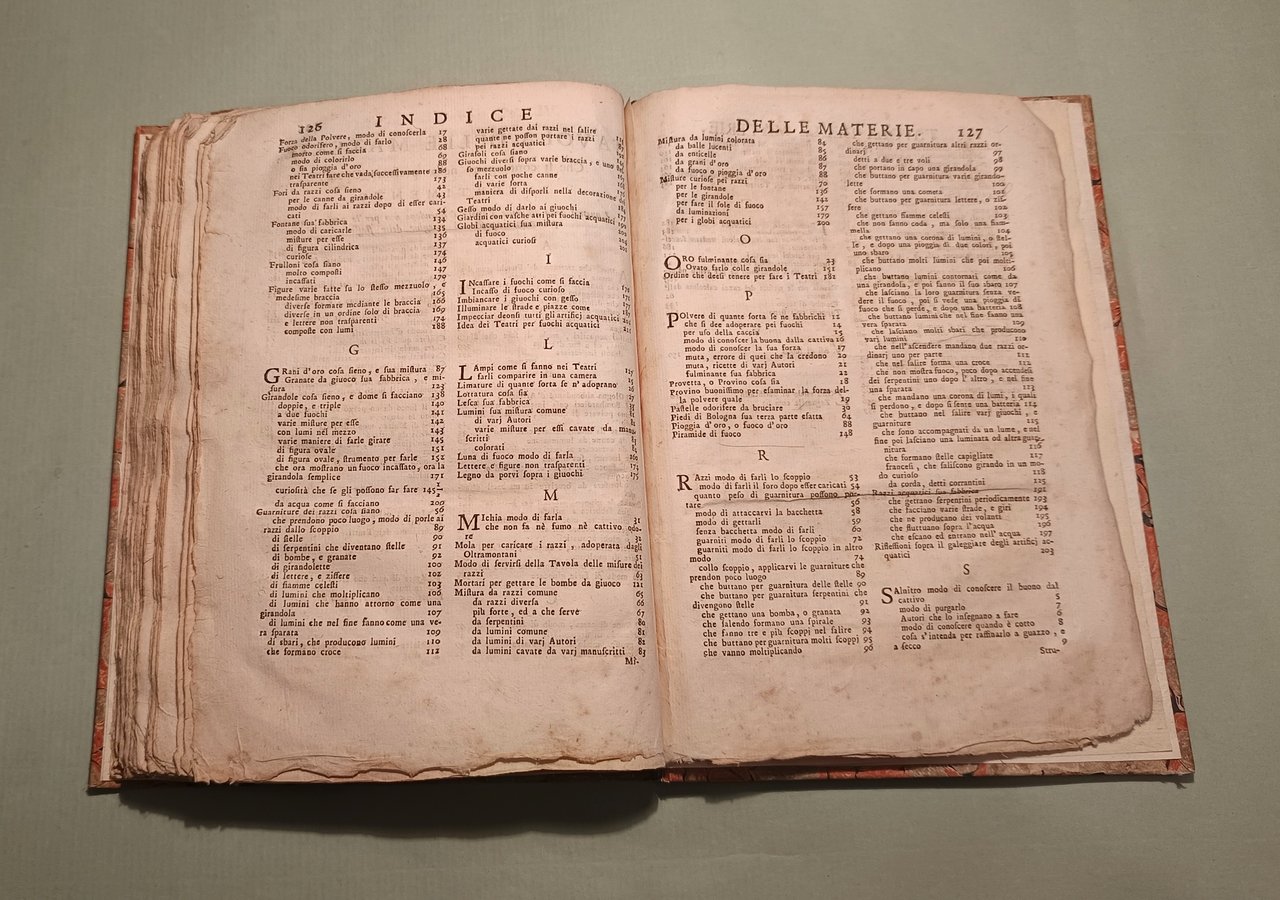 126
INDICE
Forza della Polvere, modo di conoscerla 17
Fuoco odorifero, modo di farlo 28
morto come si faccia 68
modo di colorirlo 69
o sia pioggia d'oro 88
nei Teatri fare che vada successivamente 180
trasparente 173
Fori da razzi cosa sieno 42
per le canne da girandole 43
modo di farli ai razzi dopo di esser cari-
cati 54
Fontane sua fabbrica 134
modo di caricarle 135
misture per esse 136
di figura cilindrica 137
curiose 174
Frulloni cosa siano 146
molto composti 147
incassati 170
Figure varie fatte su lo stesso mezzuolo, e
medesime braccia 165
diverse formate mediante le braccia 166
diverse in un ordine solo di braccia 169
e lettere non trasparenti 174
composte con lumi 188
G
GRani d'oro cosa sieno, e sua mistura 87
Granate da giuoco sua fabbrica, e mi-
sura 123
Girandole cosa sieno, e dome si facciano 138
doppie, e triple 140
a due fuochi 141
varie misture per esse 142
con lumi nel mezzo 143
varie maniere di farle girare 145
di figura ovale 151
di figura ovale, strumento per farle 152
che ora mostrano un fuoco incassato, ora la
girandola semplice 171
curiosità che se gli possono far fare 145 1/2
da acqua come si facciano 200
Guarniture dei razzi cosa siano 56
che prendono poco luogo, modo di porle ai
razzi dallo scoppio 89
di stelle 90
di serpentini che diventano stelle 91
di bombe, e granate 92
di girandolette 100
di lettere, e ziffere 102
di fiamme celesti 103
di lumini che moltiplicano 106
di lumini che hanno attorno come una
girandola 107
di lumini che nel fine fanno come una ve-
ra sparata 109
di sbari, che producono lumini 110
che formano croce 112
varie gettate dai razzi nel salire
quante ne posson portare i razzi
pei razzi acquatici
Girasoli cosa siano
Giuochi diversi sopra varie braccia, e uno stes-
so mezzuolo
farli con poche canne
di varie sorta
maniera di disporli nella decorazione de
Teatri
Gesso modo di darlo ai giuochi
Giardini con vasche atti pei fuochi acquatici
Globi acquatici sua mistura
di fuoco
acquatici curiosi
I
INcassare i fuochi come si faccia
Incasso di fuoco curioso
Imbiancare i giuochi con gesso
Illuminare le strade e piazze come
Impecciar deonsi tutti gli artifici acquatici
Idea dei Teatri per fuochi acquatici
L
LAmpi come si fanno nei Teatri
farli comparire in una camera
Limature di quante sorta se n'adoprano
Lottatura cosa sia
Lesca sua fabbrica
Lumini sua mistura comune
di varj Autori
varie misture per essi cavate da manu-
scritti
colorati
Luna di fuoco modo di farla
Lettere e figure non trasparenti
Legno da porvi sopra i giuochi
M
MIchia modo di farla 31
che non fa nè fumo nè cattivo odo-
re 32
Mola per caricare i razzi, adoperata dagli
Oltramontani 51
Modo di servirsi della Tavola delle misure dei
razzi 63
Mortari per gettare le bombe da giuoco 121
Mistura da razzi comune 65
da razzi diversa 66
più forte, ed a che serve 67
da serpentini 80
da lumini comune 81
da lumini di varj Autori 81
da lumini cavate da varj manuscritti 83
Mi-
DELLE MATERIE. 127
Mistura da lumini colorata 84
da balle lucenti 85
da enticelle 86
da grani d'oro 87
da fuoco o pioggia d'oro 88
Misture curiose pei razzi 70
per le fontane 136
per le girandole 142
per fare il sole di fuoco 157
da luminazioni 179
per i globi acquatici 200
O
ORO fulminante cosa sia 23
Ovato farlo colle girandole 151
Ordine che deesi tenere per fare i Teatri 181
P
POlvere di quante sorta se ne fabbrichi 12
che si dee adoperare pei fuochi 14
per uso della caccia 15
modo di conoscer la buona dalla cattiva 16
modo di conoscer la sua forza 17
muta, errore di quei che la credono 20
muta, ricette di varj Autori 21
fulminante sua fabbrica 22
Provetta, o Provino cosa sia 18
Provino buonissimo per esaminar la forza del-
la polvere quale 19
Pastelle odorifere da bruciare 30
Piedi di Bologna sua terza parte esatta 64
Pioggia d'oro, o fuoco d'oro 88
Piramide di fuoco 148
R
RAzzi modo di farli lo scoppio 53
modo di farli il foro dopo esser caricati 54
quanto peso di guarnitura possono por-
tare 56
modo di attaccarvi la bacchetta 58
modo di gettarli 59
senza bacchetta modo di farli 60
guarniti modo di farli lo scoppio 72
guarniti modo di farli lo scoppio in altro
modo 74
collo scoppio, applicarvi le guarniture che
prendon poco luogo 89
che buttano per guarnitura delle stelle 90
che buttano per guarnitura serpentini che
divengono stelle 91
che gettano una bomba, o granata 92
che salendo formano una spirale 93
che fanno tre e più scoppi nel salire 94
che buttano per guarnitura molti scoppj 95
che vanno moltiplicando 96
che gettano per guarnitura altri razzi or-
dinarj 97
detti a due e tre voli 98
che portano in capo una girandola 99
che buttano per guarnitura varie girando-
lette 100
che formano una comera 101
che buttano per guarnitura lettere, o zif-
fere 102
che gettano fiamme celesti 103
che non fanno coda, ma solo una fiam-
mella 104
che gettano una corona di lumini, o stel-
le, e dopo una pioggia di due colori, poi
uno sbaro 105
che buttano molti lumini che poi molti-
plicano 106
che buttano lumini contornati come da
una girandola, e poi fanno il suo sbaro 107
che lasciano la loro guarnitura senza ve-
dere il fuoco, poi si vede una pioggia di
fuoco che si perde, e dopo una batteria 108
che buttano lumini che nel fine fanno una
vera sparata 109
che lasciano molti sbari che producono
varj lumini 110
che nell'ascendere mandano due razzi or-
dinarj uno per parte 111
che nel salire forma una croce 112
che non mostra fuoco, poco dopo accendesi
dei serpentini uno dopo l'altro, e nel fine
una sparata 113
che mandano una corona di lumi, i quali
si perdono, e dopo si sente una batteria 114
che buttano nel salire varj giuochi, e
guarniture 115
che sono accompagnati da un lume, e nel
fine poi lasciano una luminata od altra guar-
nitura 116
che formano stelle capigliate 117
francesi, che saliscono girando in un mo-
do curioso 118
da corda, detti correntini 125
Razzi acquatici sua fabbrica 191
che gettano serpentini periodicamente 193
che facciano varie strade, e giri 194
che ne producano dei volanti 195
che fluttuano sopra l'acqua 196
che escano ed entrano nell'acqua 197
Riflessioni sopra il galeggiare degli artifizj ac-
quatici 203
S
SAlnitro modo di conoscere il buono dal
cattivo 5
modo di purgarlo 7
Autori che lo insegnano a fare 6
modo di conoscere quando è cotto 8
cosa s'intenda per raffinarlo a guazzo, e
a secco 9
Stru-